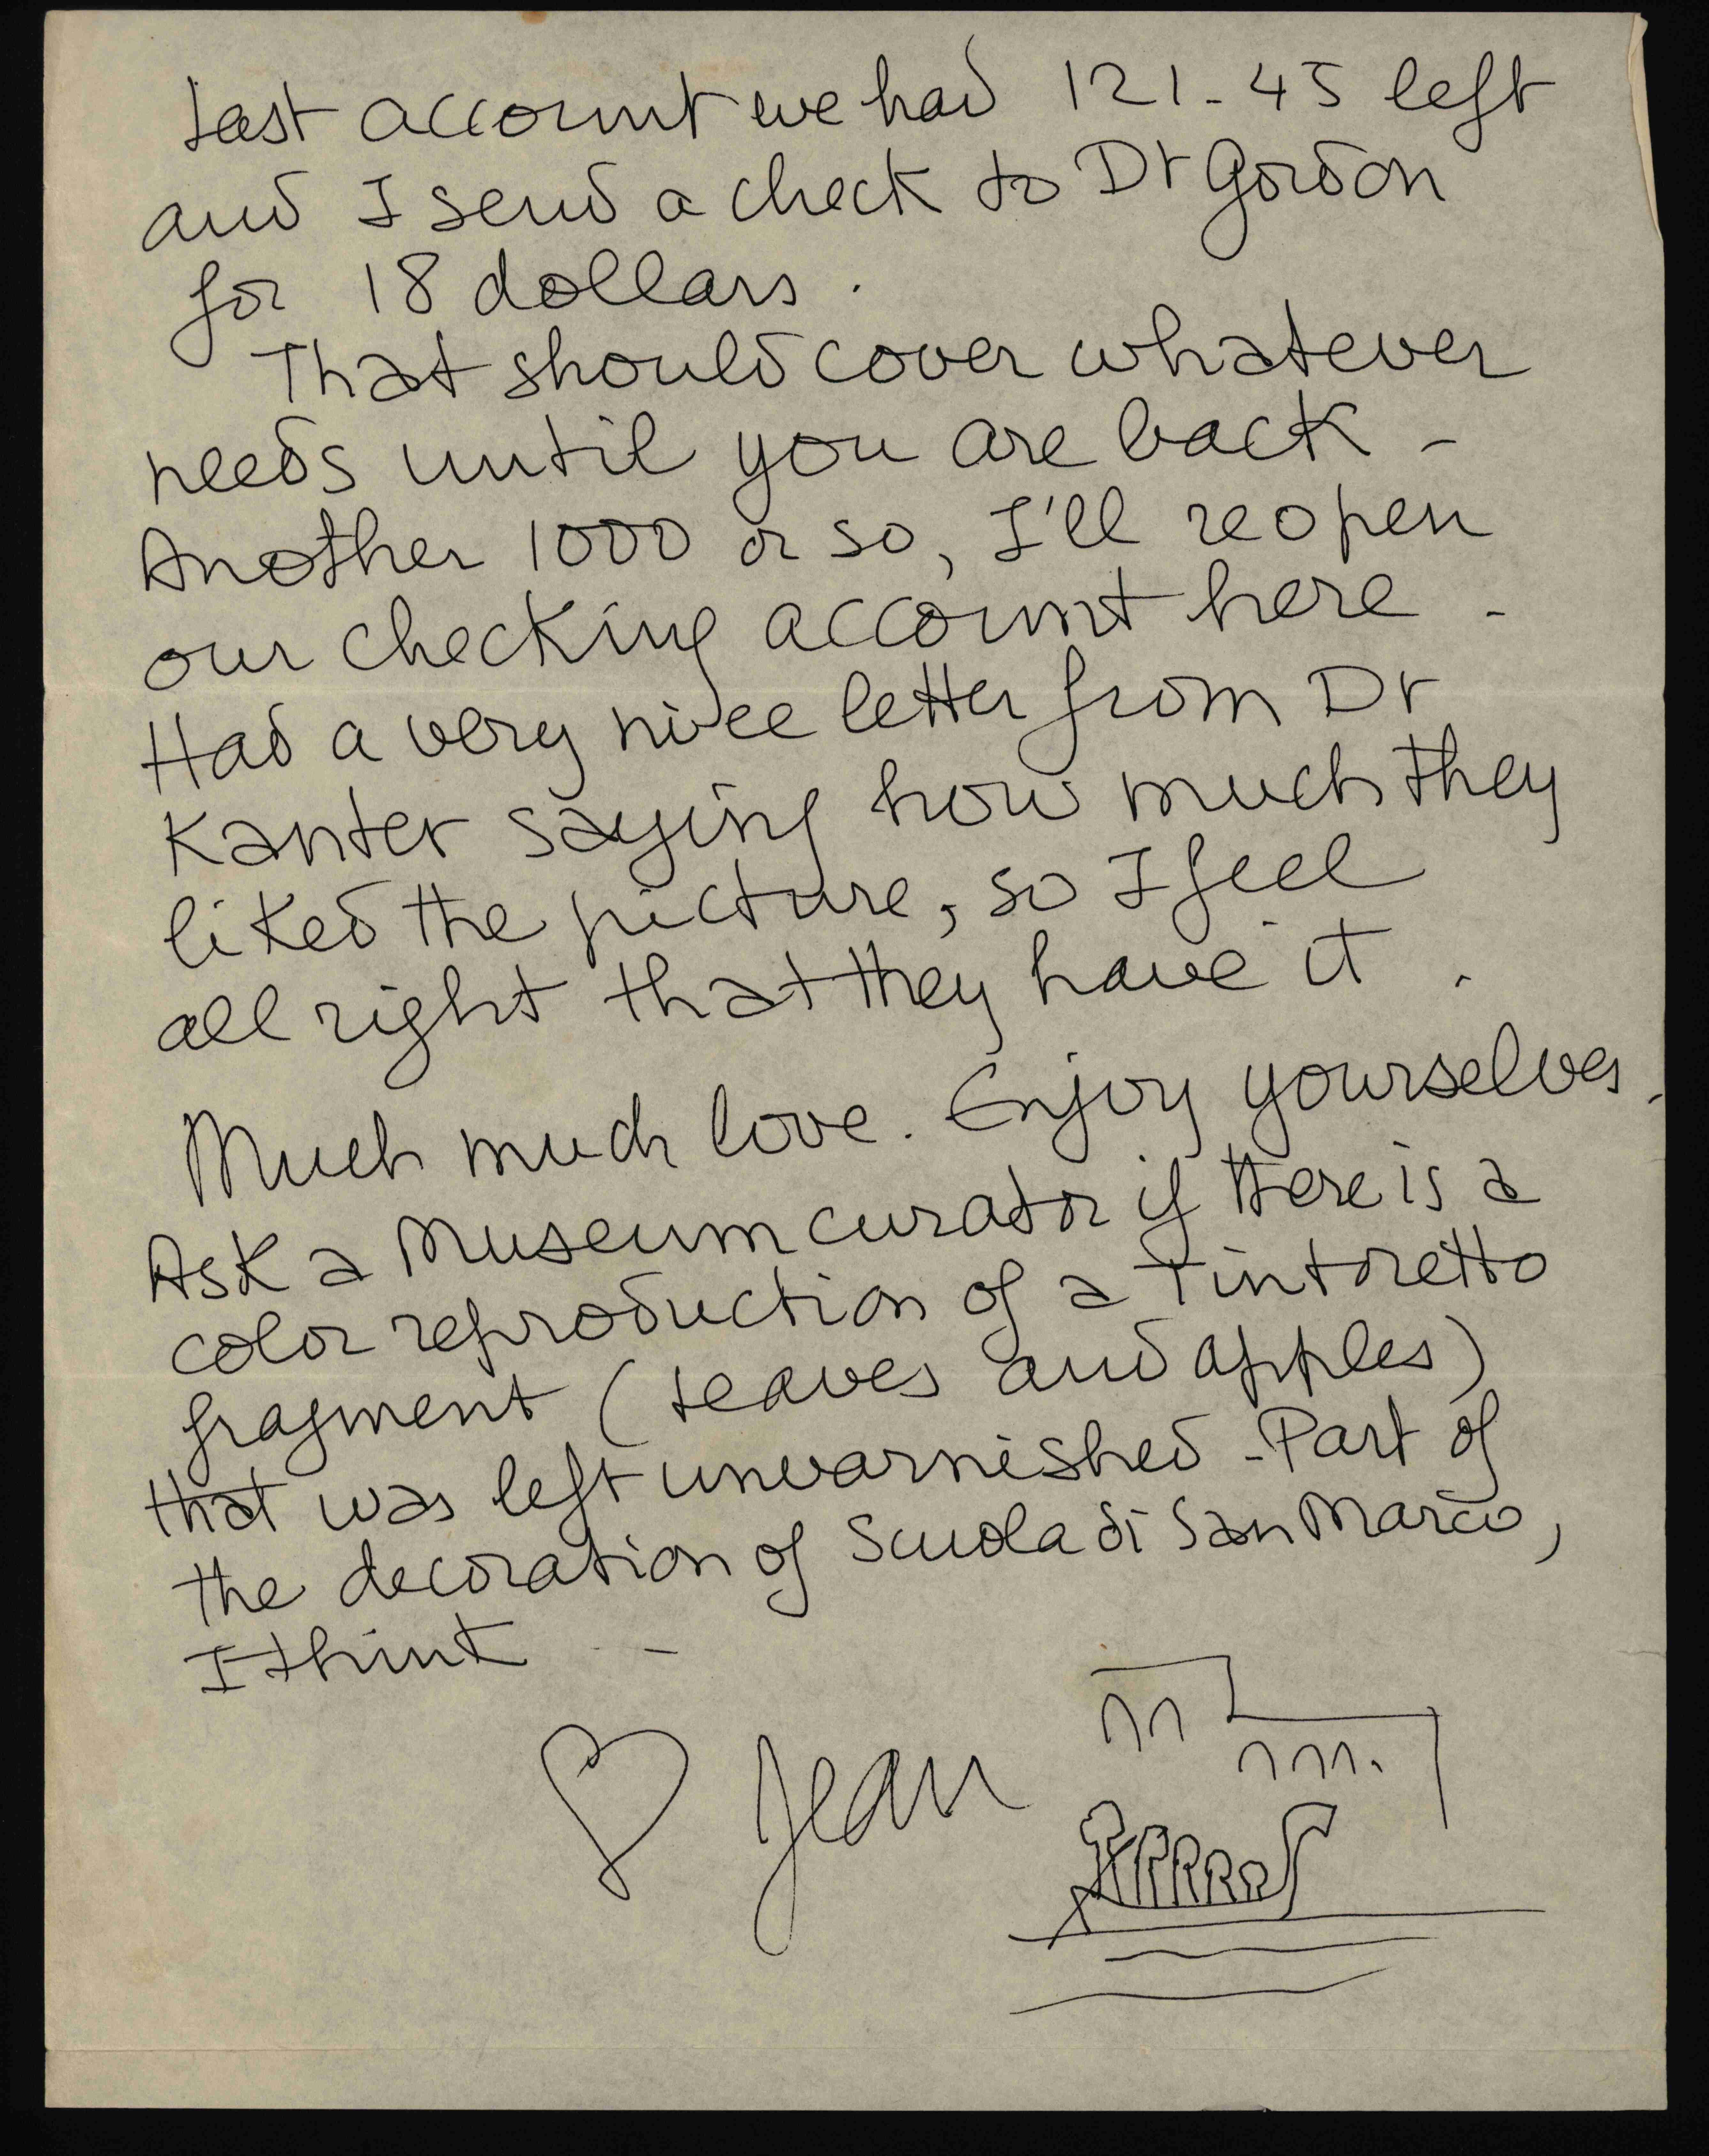 Last account we had 121-45 left
and I send a check to Dr Gordon
for 18 dollars.
That should cover whatever
needs until you are back -
Another 1000 or so, I'll reopen
our checking account here -
Had a very nice letter from Dr
Kanter saying how much they
liked the picture, so I feel
all right that they have it.
Much much love. Enjoy yourselves.
Ask a Museum curator if there is a
color reproduction of a Tintoretto
fragment (leaves and apples)
that was left unvarnished - Part of
the decoration of Scuola di San Marco,
I think --
Jean